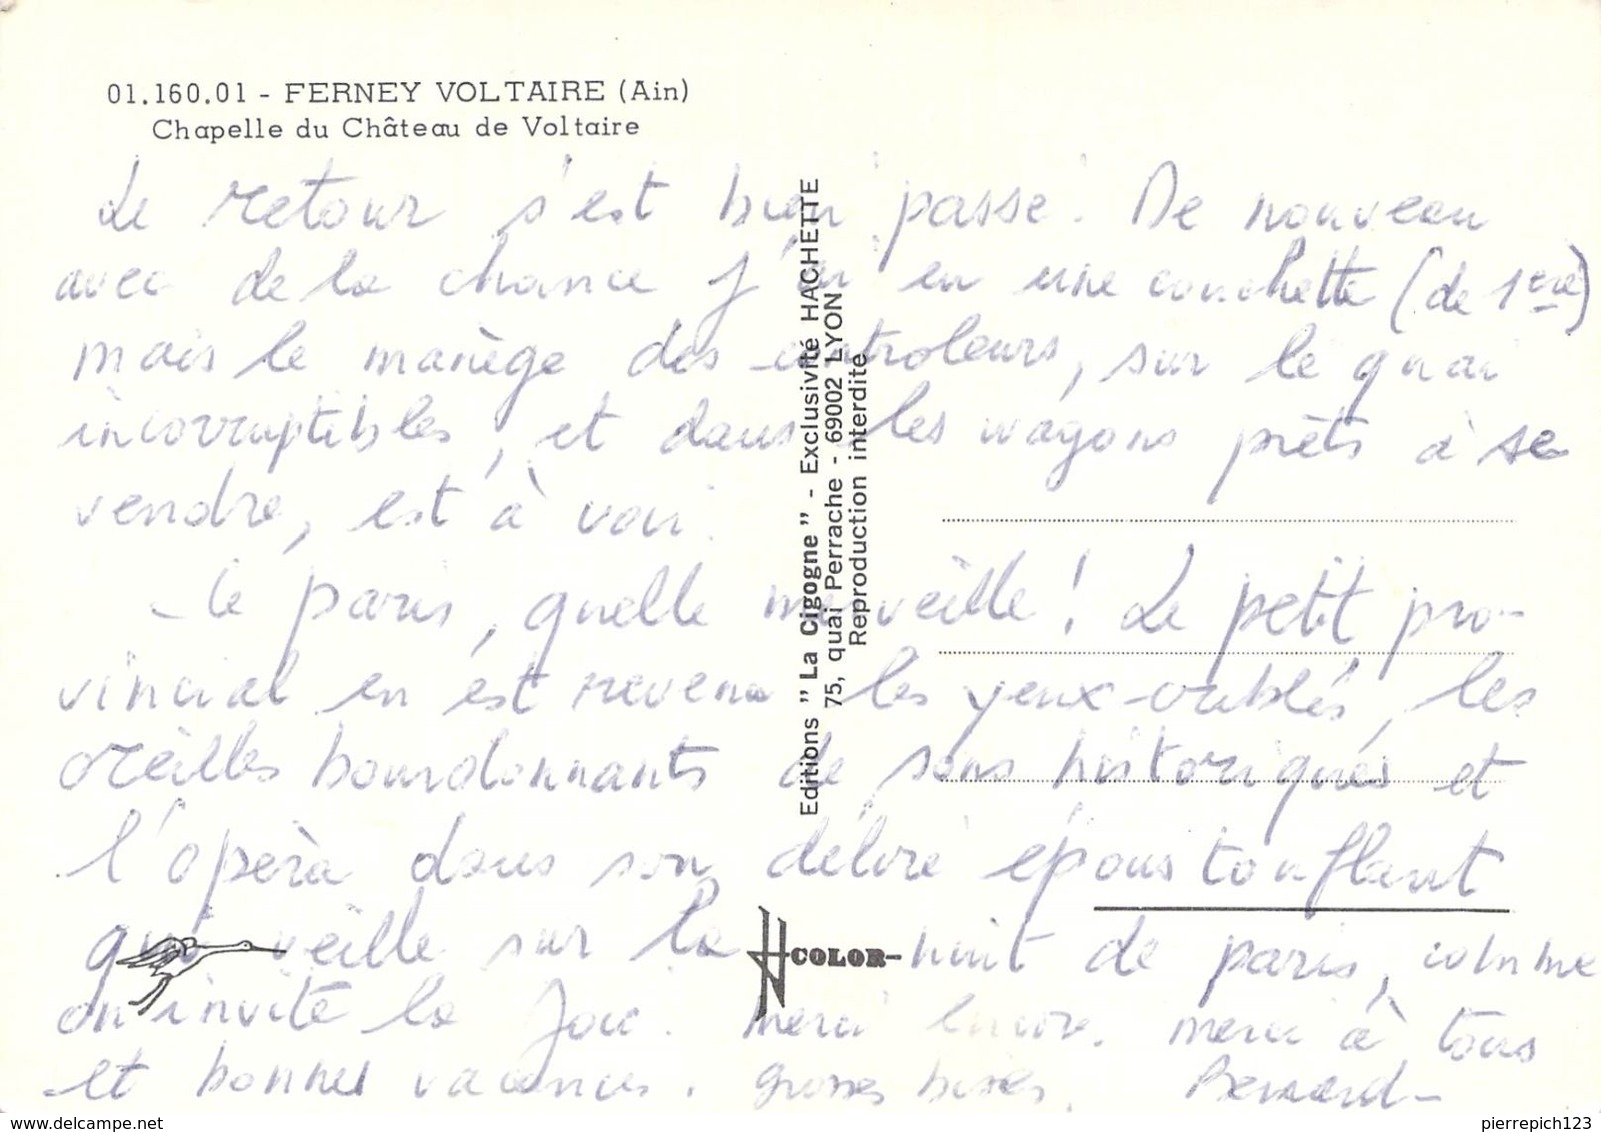 01.160.01 - FERNEY VOLTAIRE (Ain)
Chapelle du Château de Voltaire
Le retour s'est bien passé. De nouveau
avec de la chance j'ai eu une couchette (de 1ère)
mais le manège des controleurs, sur le quai
incorruptibles, et dans les wagons prêts à se
vendre, est à voir.
- le paris, quelle merveille ! Le petit pro-
vincial en est revenu les yeux oublés, les
oreilles bourdonnants de sons historiques et
l'opèra dans son délire époustouflant
qui veille sur la nuit de paris, comme
on invite la joie. merci encore. merci à tous
et bonnes vacances. grosses bises. Bernard -
Editions " La Cigogne " - Exclusivité HACHETTE
75, quai Perrache - 69002 LYON
Reproduction interdite
COLOR
pierrepich123